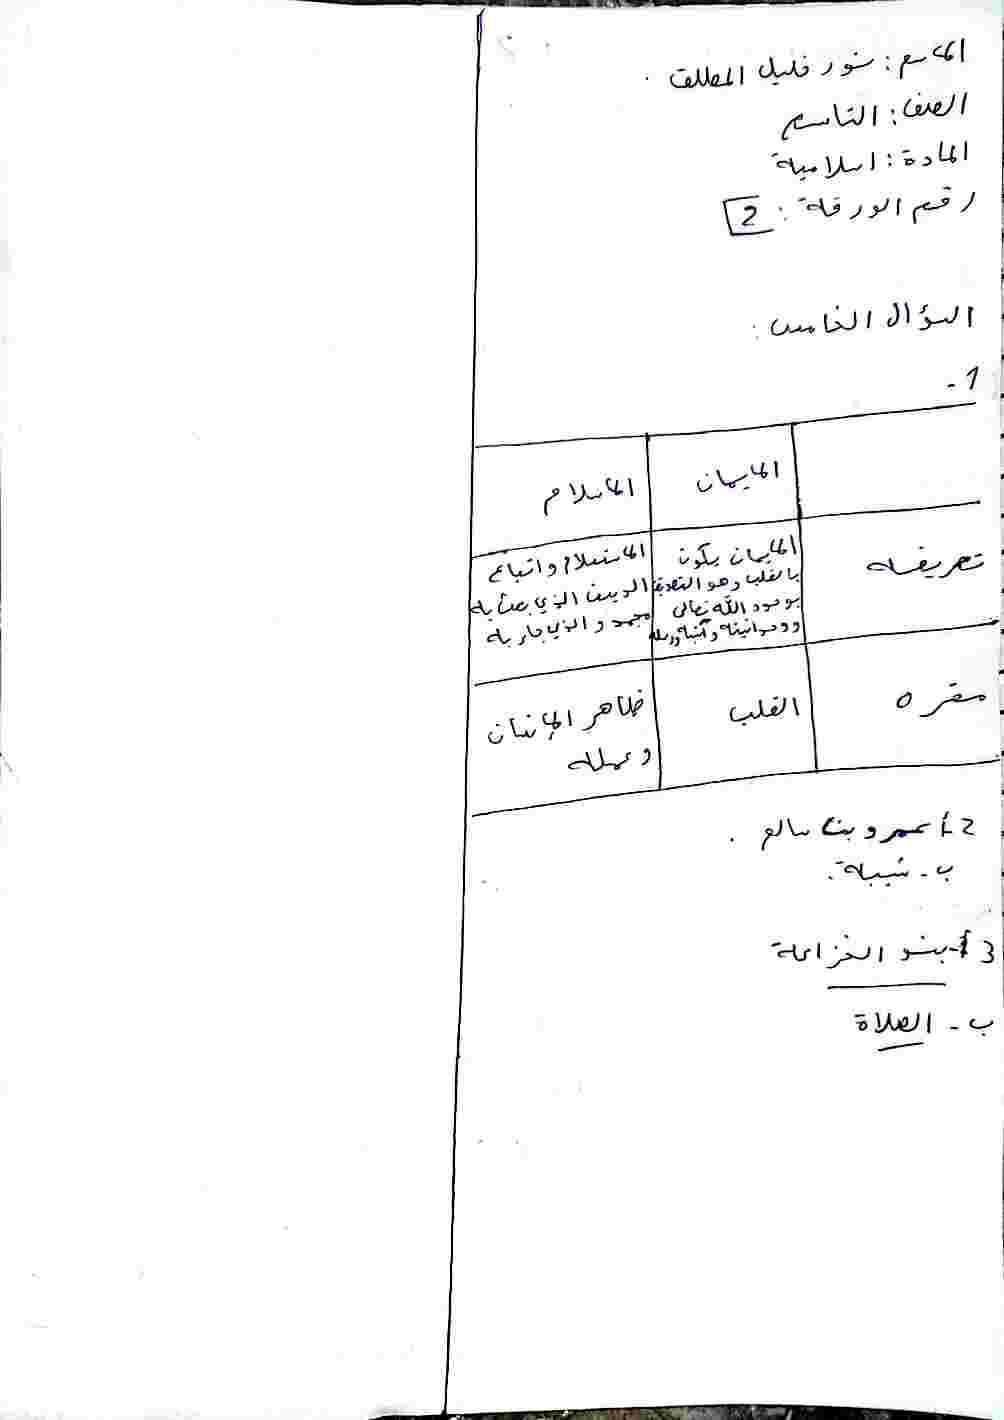 الاسم: نور خليل المطلق.
الصف: التاسع
المادة: اسلامية
رقم الورقة: 2
السؤال الخامس:
1-
الايمان
الاسلام
تعريفه
الايمان يكون
بالقلب وهو التصديق
بوجود الله تعالى
ووحدانيته وكتبه ورسله
الاستسلام واتباع
الدين الذي بعث به
محمد والذي جاء به
مقره
القلب
ظاهر الإنسان
وعمله
2 أ عمرو بن سالم.
ب- شيبة.
3 أ- بنو الخزاعة
ب- الصلاة